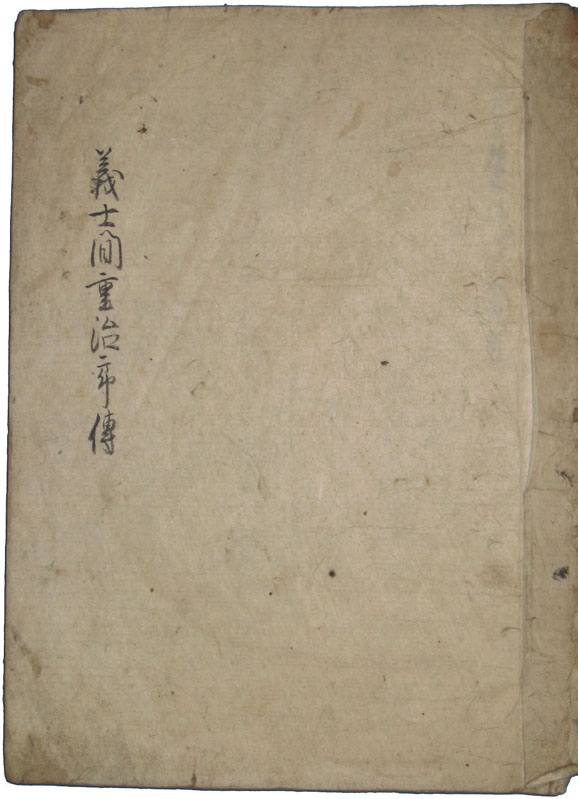 義士間重治郎傳